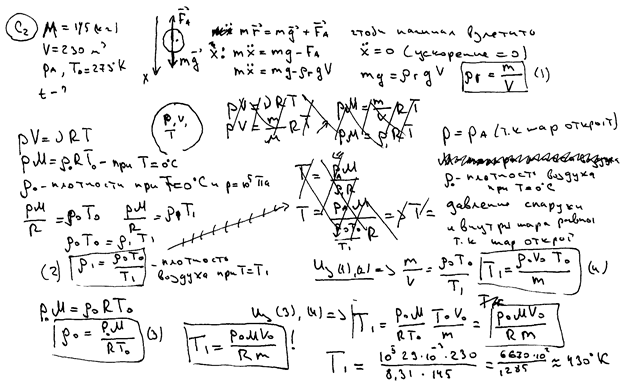 C₂ M = 145 (кг)
V = 230 м³
pA, T₀ = 273°K
t - ?
F⃗A
mg⃗
x
m r̈ = mg⃗ + F⃗A
x: mẍ = mg - FA
mẍ = mg - ρгgV
чтобы начинал взлетать
ẍ = 0 (ускорение = 0)
mg = ρгgV ρг = m/V (1)
pV = νRT
p, V, T
pV = νRT
pV = m/M RT
p = pA (т.к шар открыт)
pM = ρ₀RT₀ - при T = 0°C
ρ₀ - плотности при T = 0°C и p = 10⁵ Па
pM/R = ρ₀T₀ pM/R = ρ₁T₁
ρ₀T₀ = ρ₁T₁
(2) ρ₁ = ρ₀T₀/T₁ - плотность воздуха при T = T₁
ρ₀ - плотность воздуха при T = 0°C
давление снаружи
и внутри шара равны
т.к шар открыт
Из (1), (2) => m/V = ρ₀T₀/T₁ T₁ = ρ₀V₀T₀/m (4)
p₀M = ρ₀RT₀
ρ₀ = p₀M/RT₀ (3)
T₁ = p₀MV₀/Rm !
Из (3), (4) => T₁ = p₀M/RT₀ · T₀V₀/m = p₀MV₀/Rm
T₁ = 10⁵ · 29 · 10⁻³ · 230 / 8,31 · 145 = 6670 · 10²/1205 ≈ 430°K